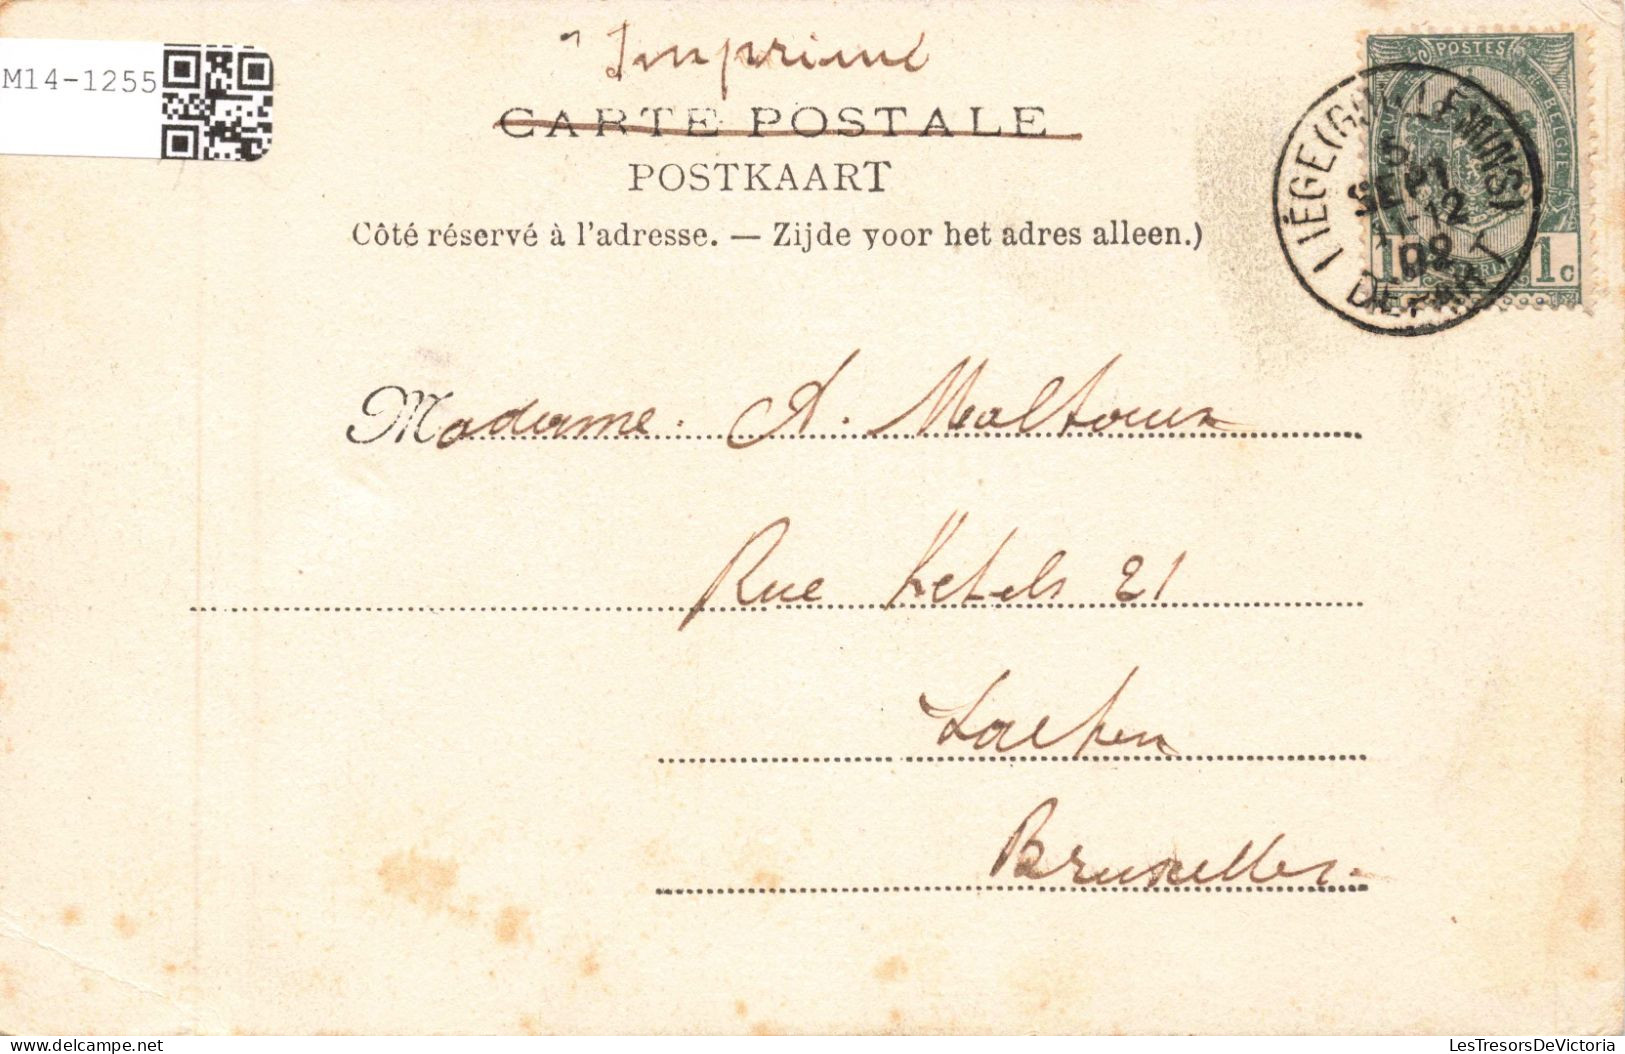 M14-1255
Imprimé
CARTE POSTALE
POSTKAART
Côté réservé à l'adresse. — Zijde voor het adres alleen.)
POSTES
BELGIE
1 1c
LIÉGE (GUILLEMINS)
5
SEPT
11-12
DÉPART
Madame. A. Maltoux
Rue Ketels 21
Laeken
Bruxelles.
LesTresorsDeVictoria
delcampe.net